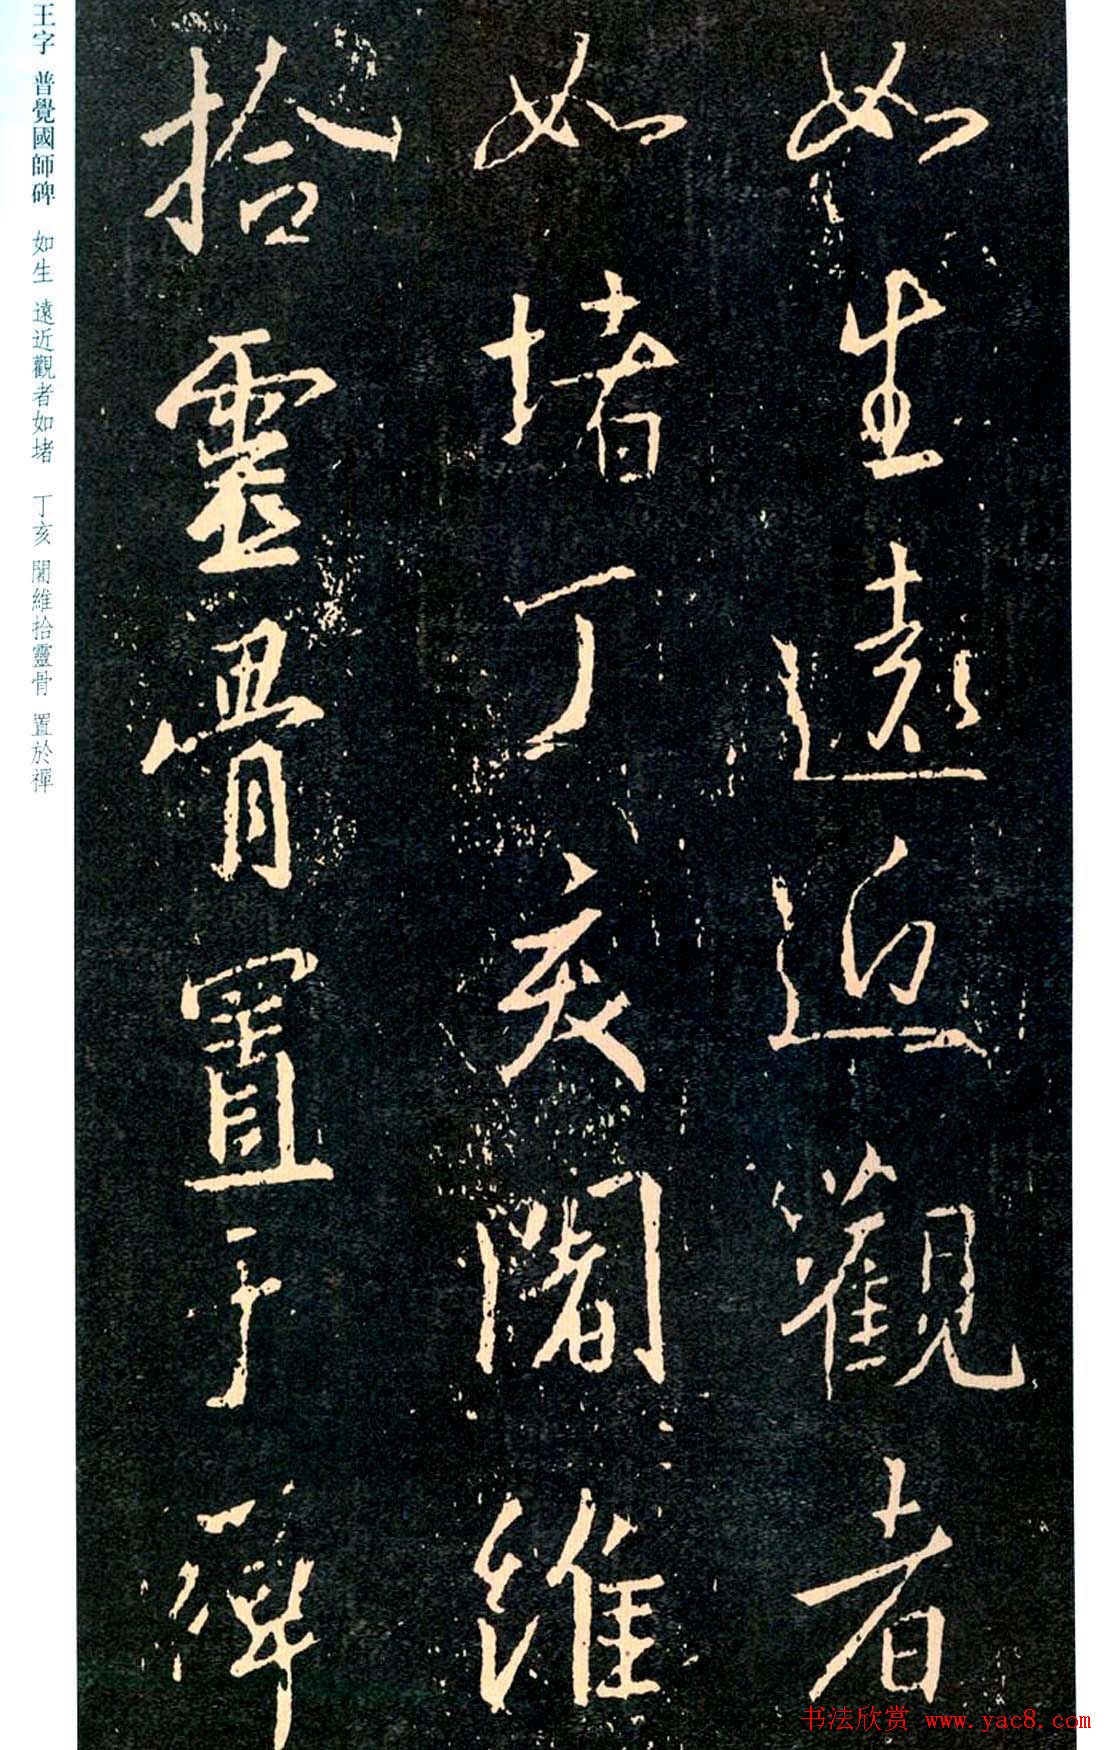 如生遠近觀者
如堵丁亥闍維
拾靈骨置于禪
王字 普覺國師碑 如生 遠近觀者如堵 丁亥 闍維拾靈骨 置於禪
书法欣赏 www.yac8.com